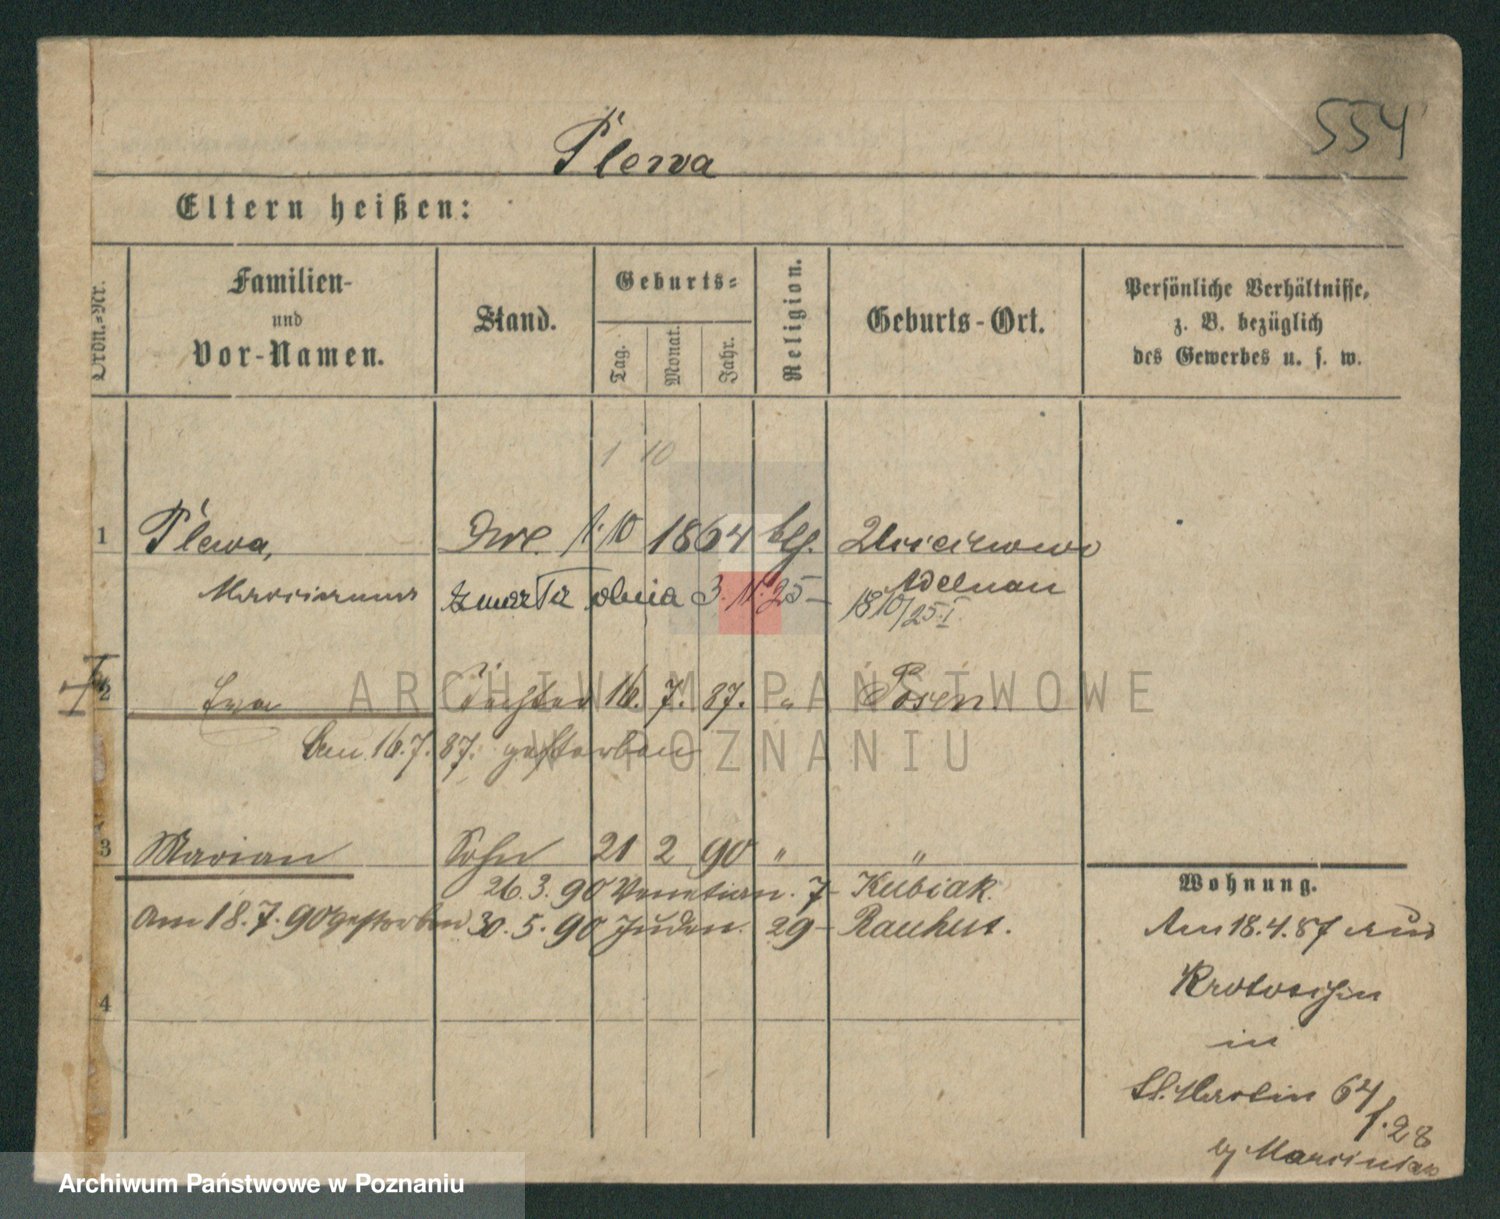 554
Plewa
Eltern heißen:
Ordn.-Nr.
Familien-
und
Vor-Namen.
Stand.
Geburts-
Tag.
Monat.
Jahr.
Religion.
Geburts-Ort.
Persönliche Verhältnisse,
z. B. bezüglich
des Gewerbes u. s. w.
1 10
1 Plewa, 1. 10 1864
Marianna zmarła dnia 3. 11. 25 Adelnau
18 10/25.I.
2 Eva Tochter 16. 7. 87. " Posen
16.7.87. gestorben
3 Marian Sohn 21 2 90 " "
26.3.90 Venetian. 7 Kubiak.
Am 18.7.90 gestorben 30.5.90 Juden. 29 Rauhut.
4
Wohnung.
Am 18.4.87 aus
Krotoschin
in
St. Martin 64
f. 28
by Marciniak
ARCHIWUM PAŃSTWOWE
W POZNANIU
Archiwum Państwowe w Poznaniu